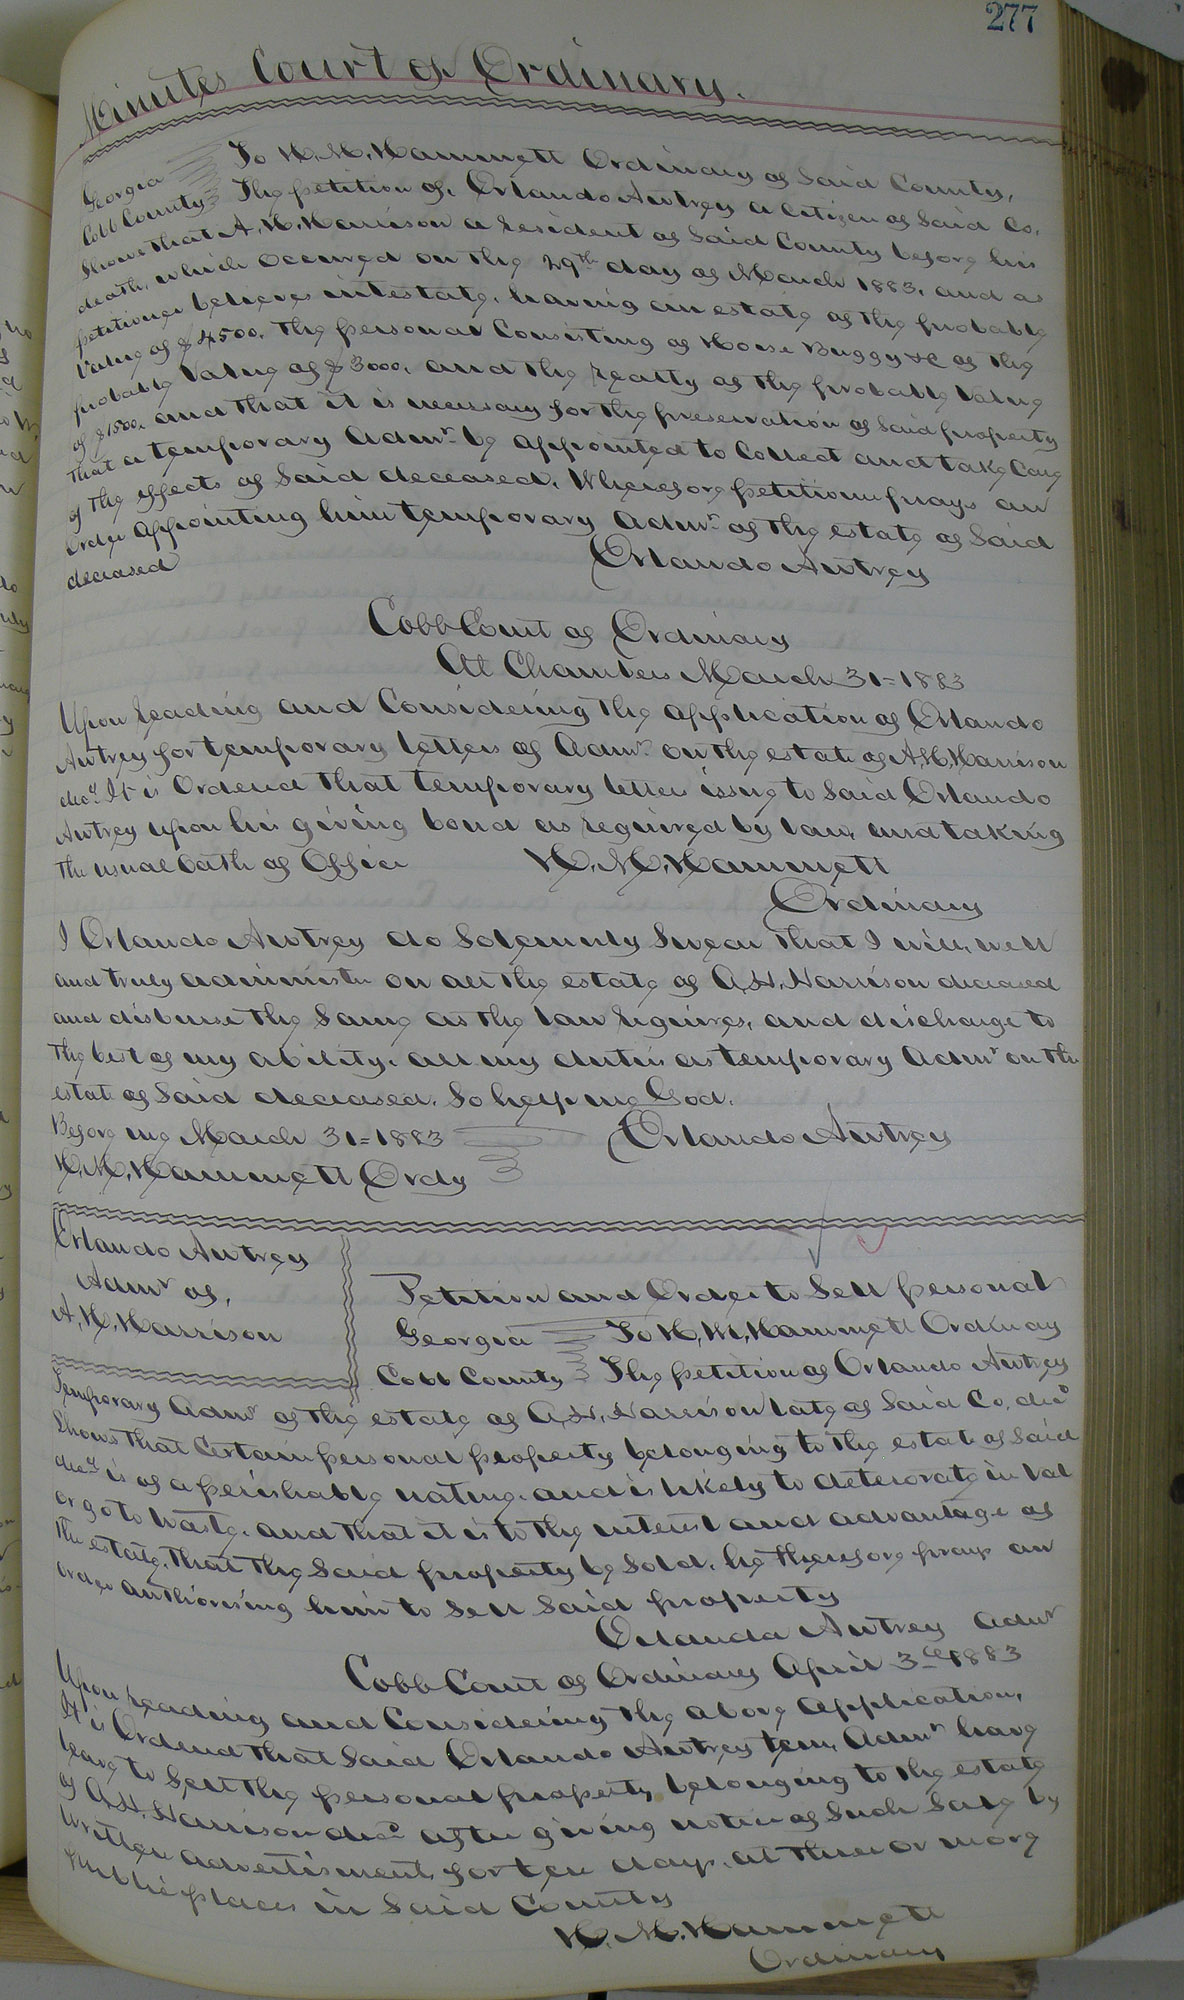 277
Minutes Court of Ordinary.
Georgia To H. M. Hammett Ordinary of Said County,
Cobb County The petition of, Orlando Awtrey a citizen of Said Co.
Shows that A. H. Harrison a resident of Said County before his
death, which occured on the 29th day of March 1883, and as
petitioner believes intestate, having an estate of the probable
Value of $4500. The personal Consisting of Horse Buggy &c of the
probable Value of $3000, and the realty of the probable Value
of $1500, and that it is necessary for the preservation of Said property
that a temporary Admr. be appointed to Collect and take Care
of the effects of Said deceased. Wherefore petitioner prays an
Order appointing him temporary Admr. of the estate of Said
deceased Orlando Awtrey
Cobb Court of Ordinary
At Chambers March 31=1883
Upon reading and Considering the application of Orlando
Awtrey for temporary letters of Admr. on the estate of A.H. Harrison
decd. It is Ordered that temporary letters issue to Said Orlando
Awtrey upon his giving bond as required by law, and taking
the usual Oath of Office H. M. Hammett
Ordinary
I Orlando Awtrey do Solemnly Swear that I will, well
and truly administer on all the estate of A.H. Harrison deceased
and disburse the Same as the law requires, and discharge to
the best of my ability, all my duties as temporary Admr on the
estate of Said deceased. So help me God.
Before me March 31=1883 Orlando Awtrey
H. M. Hammett Ordy
Orlando Awtrey
Admr of,
A. H. Harrison
Petition and Order to Sell personal
Georgia To H. M. Hammett Ordinary
Cobb County The petition of Orlando Awtrey
Temporary Admr of the estate of A.H. Harrison late of Said Co, decd
Shows that Certain personal property belonging to the estate of Said
decd is of a perishable nature, and is likely to deteriorate in Val
or go to Waste, and that it is to the interest and advantage of
the estate, that the Said property be Sold. he therefore prays an
Order authorising him to Sell Said property
Orlando Awtrey Admr
Cobb Court of Ordinary April 3rd 1883
Upon reading and Considering the above application,
It is Ordered that Said Orlando Awtrey tem, Admr have
leave to Sell the personal property belonging to the estate
of A.H. Harrison decd after giving notice of Such Sale by
Written advertisment for ten days, at three or more
Public places in Said County
H. M. Hammett
Ordinary